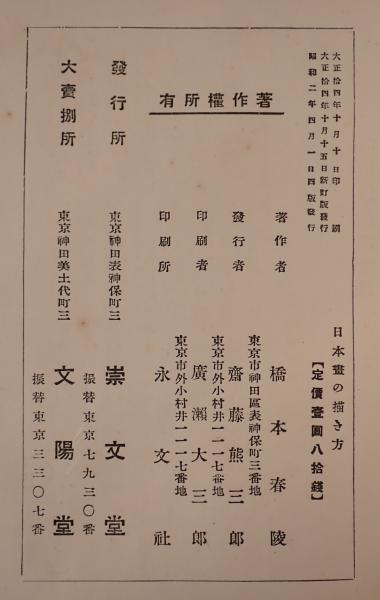 大正拾四年十月十日印刷
大正拾四年十月十五日新訂版發行
昭和二年四月一日四版發行
日本畫の描き方
【定價壹圓八拾錢】
著作權所有
著作者 橋本春陵
東京市神田區表神保町三番地
發行者 齋藤熊三郎
東京市外小村井一一一七番地
印刷者 廣瀨大三郎
東京市外小村井一一一七番地
印刷所 永文社
發行所 東京神田表神保町三 崇文堂
振替東京七九三〇番
大賣捌所 東京神田美土代町三 文陽堂
振替東京三三〇七番